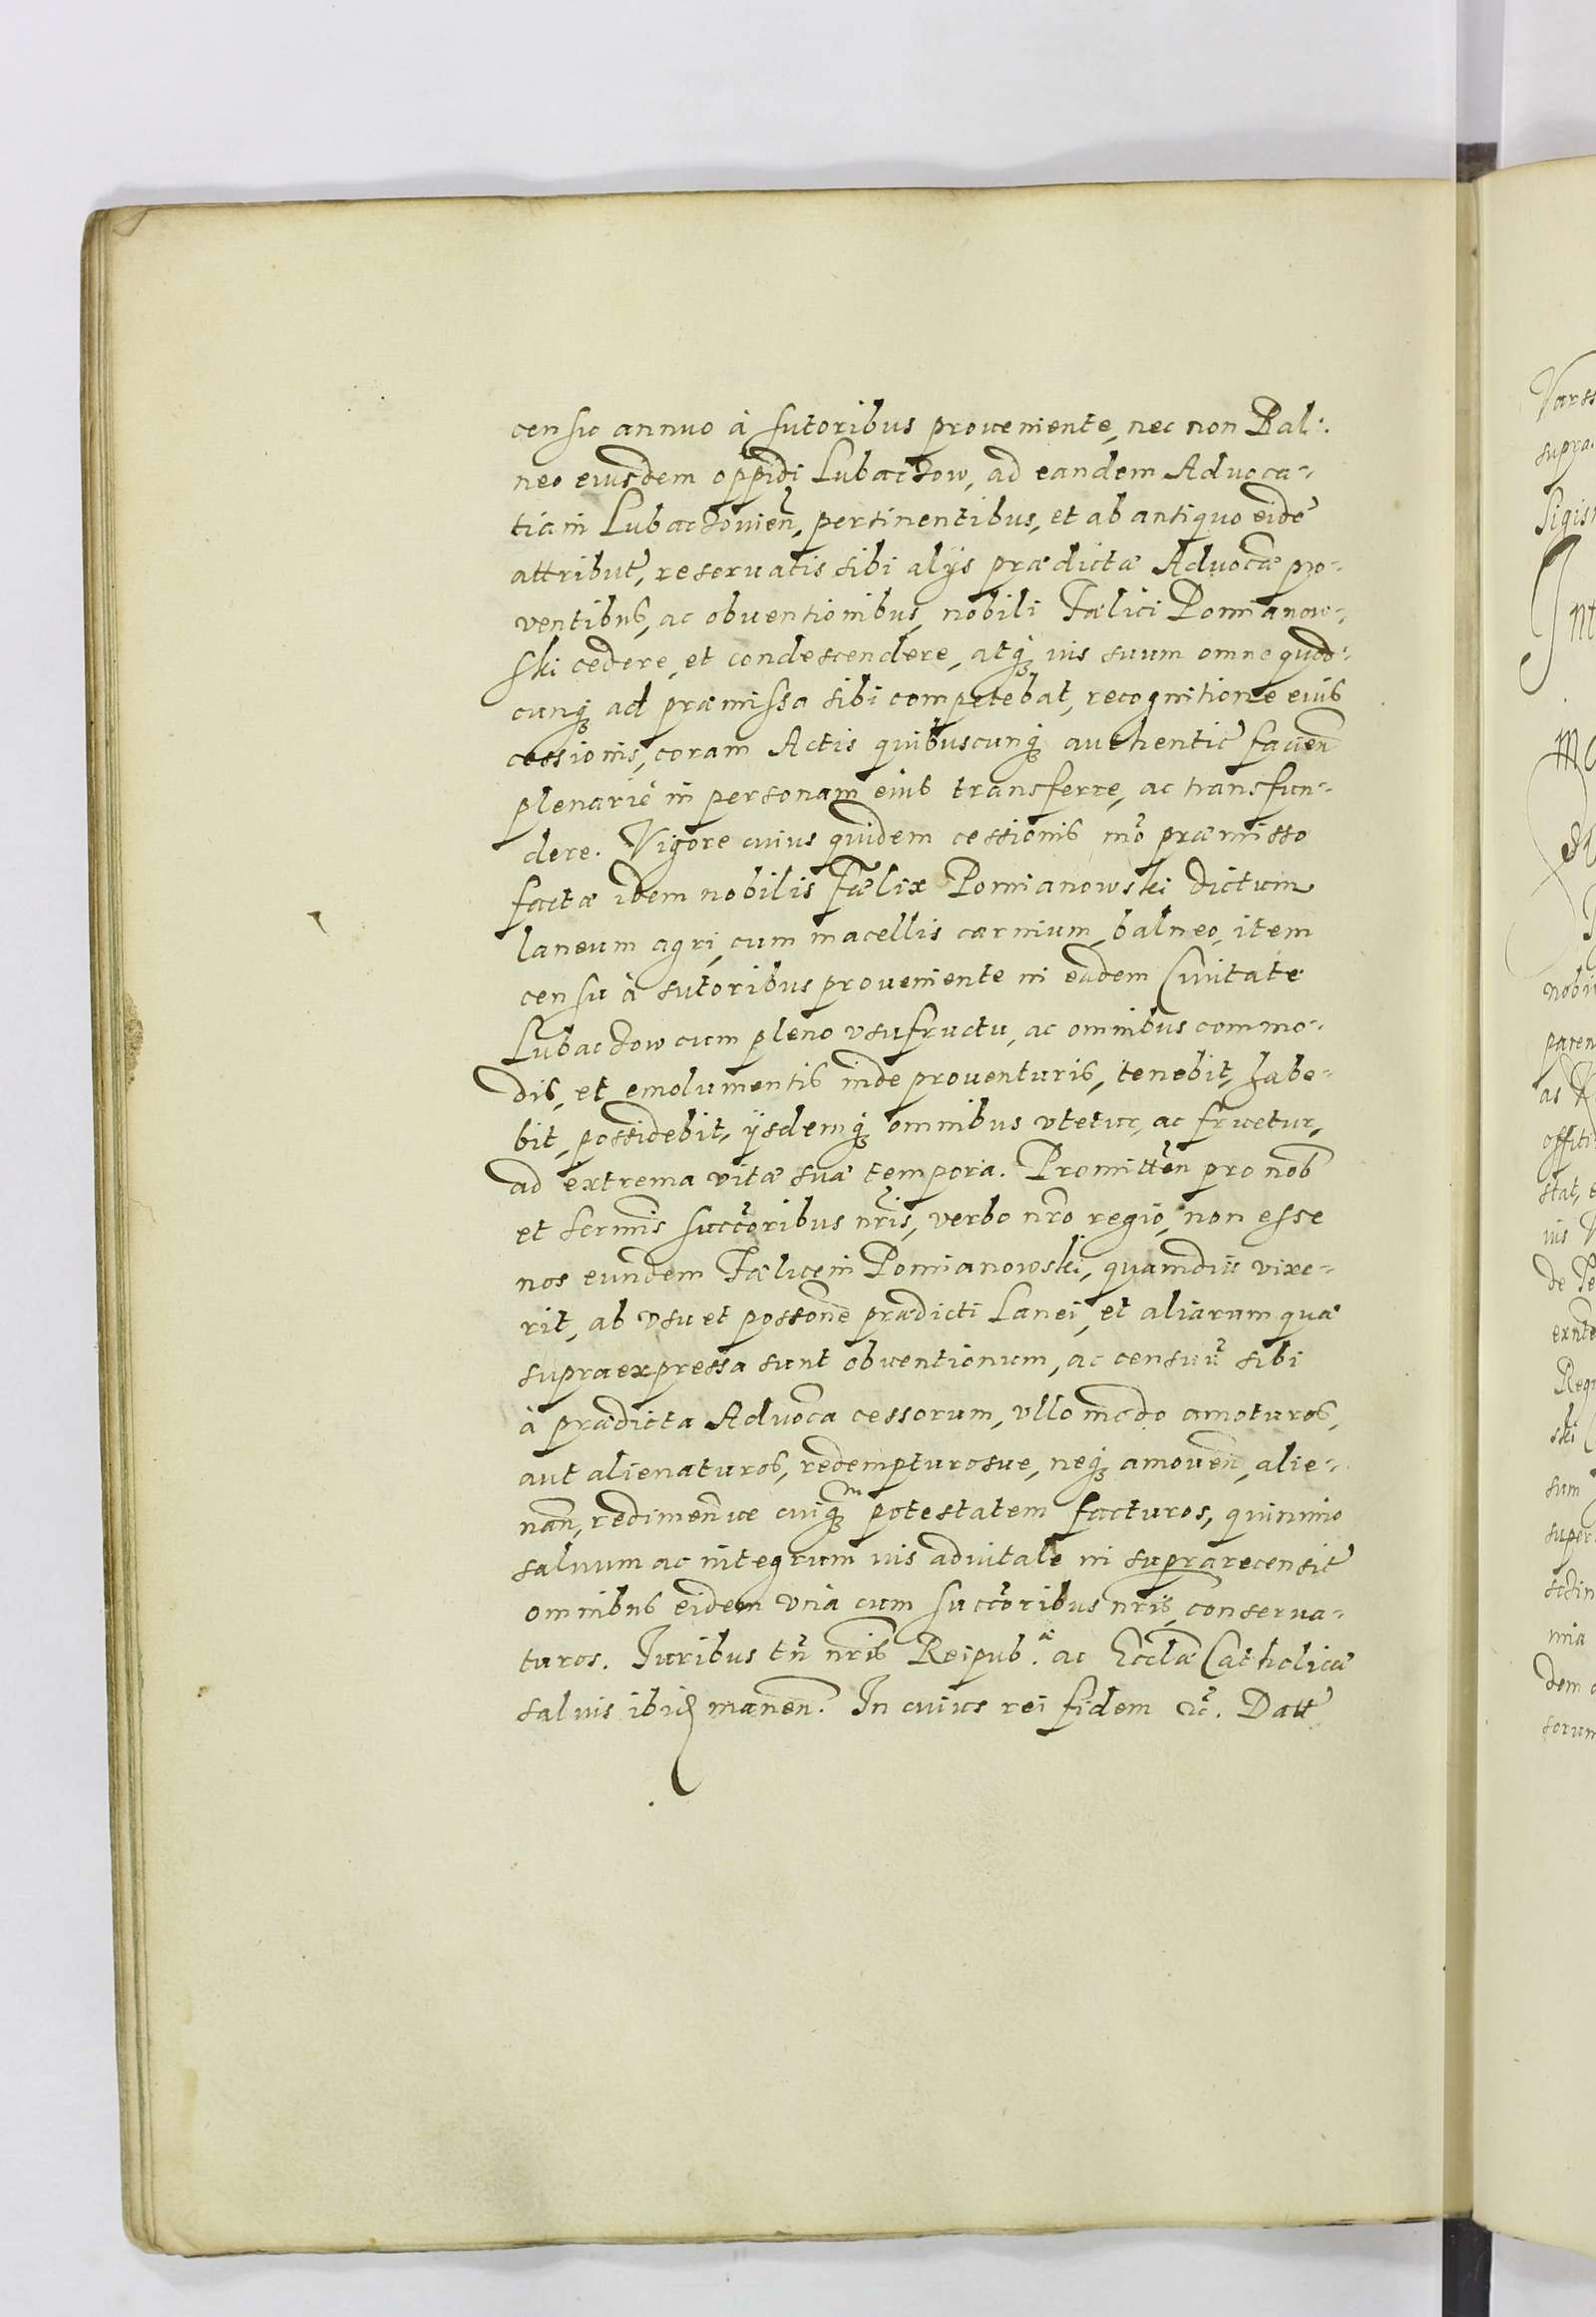 censu annuo à sutoribus proueniente, nec non Bal:
neo eiusdem oppidi Lubaczow, ad eandem Aduoca-
tiam Lubaczouien̄, pertinentibus, et ab antiquo eidē
attribut̄, reseruatis sibi alijs prædictæ Aduocãe pro-
ventibus, ac obuentionibus, nobili Fælici Pomianow-
ski cedere, et condescendere, atq́ꝫ ius suum omne quod-
cunq́ꝫ ad præmissa sibi competebat, recognitione eius
cessionis, coram Actis quibuscunq́ꝫ authentic̄ facien̄
plenariè in personam eius transferre, ac transfun-
dere. Vigore cuius quidem cessionis mō præmisso
factæ idem nobilis Fælix Pomianowski dictum
laneum agri, cum macellis carnium, balneo, item
censu à sutoribus proueniente in eadem Ciuitate
Lubaczow cum pleno vsufructu, ac omnibus commo-
dis, et emolumentis inde prouenturis, tenebit, habe-
bit, possidebit, ijsdemq́ꝫ omnibus vtetur, ac fruetur,
ad extrema vitæ suæ tempora. Promitten̄ pro nob̄
et Sermis̄ succ̄oribus nr̄is, verbo nr̄o regio, non esse
nos eundem Fælicem Pomianowski, quamdiu vixe-
rit, ab vsu et possōne prædicti Lanei, et aliarum quæ
supraexpressa sunt obuentionum, ac censuū sibi
à prædicta Aduocãa cessorum, vllo modo amoturos,
aut alienaturos, redempturosue, neq́ꝫ amouen̄, alie-
nan̄, redimen̄ue cuiq́ꝫᵐ potestatem facturos, quinimo
saluum ac integrum ius aduitale in suprarecensit̄
omnibus eidem vnà cum succ̄oribus nr̄is, conserua-
turos. Iuribus tn̄ nr̄is Reipub.ᵃᵉ ac Eccl̄æ Catholicæ
saluis ibiđ manen̄. In cuius rei fidem &c̄. Datt̄
Varss
supra
nobi
paren
as
offiti
stat, e
ius V
de
Reg
ski
sum
super
mia
dem
sorum